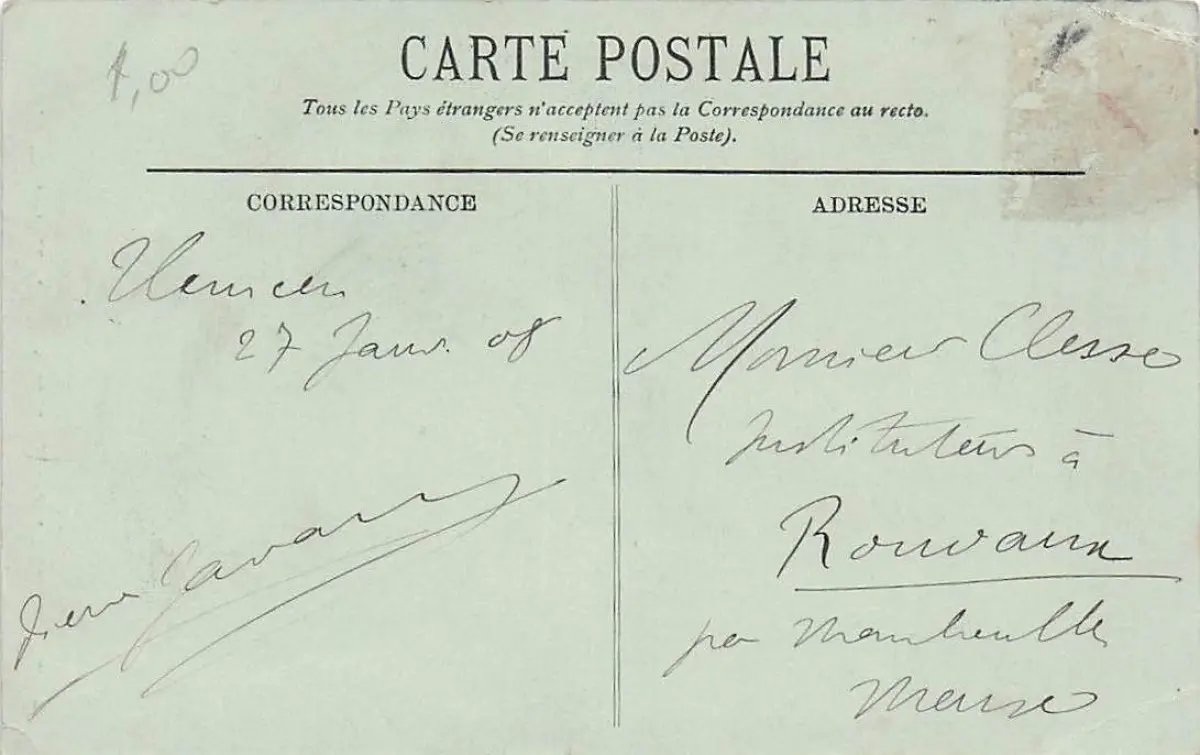 1,00
CARTE POSTALE
Tous les Pays étrangers n'acceptent pas la Correspondance au recto.
(Se renseigner à la Poste).
CORRESPONDANCE
Tlemcen
27 Janv. 08
Pierre
ADRESSE
Monsieur Clesse
Instituteur à
Rouvaux
par
Meuse